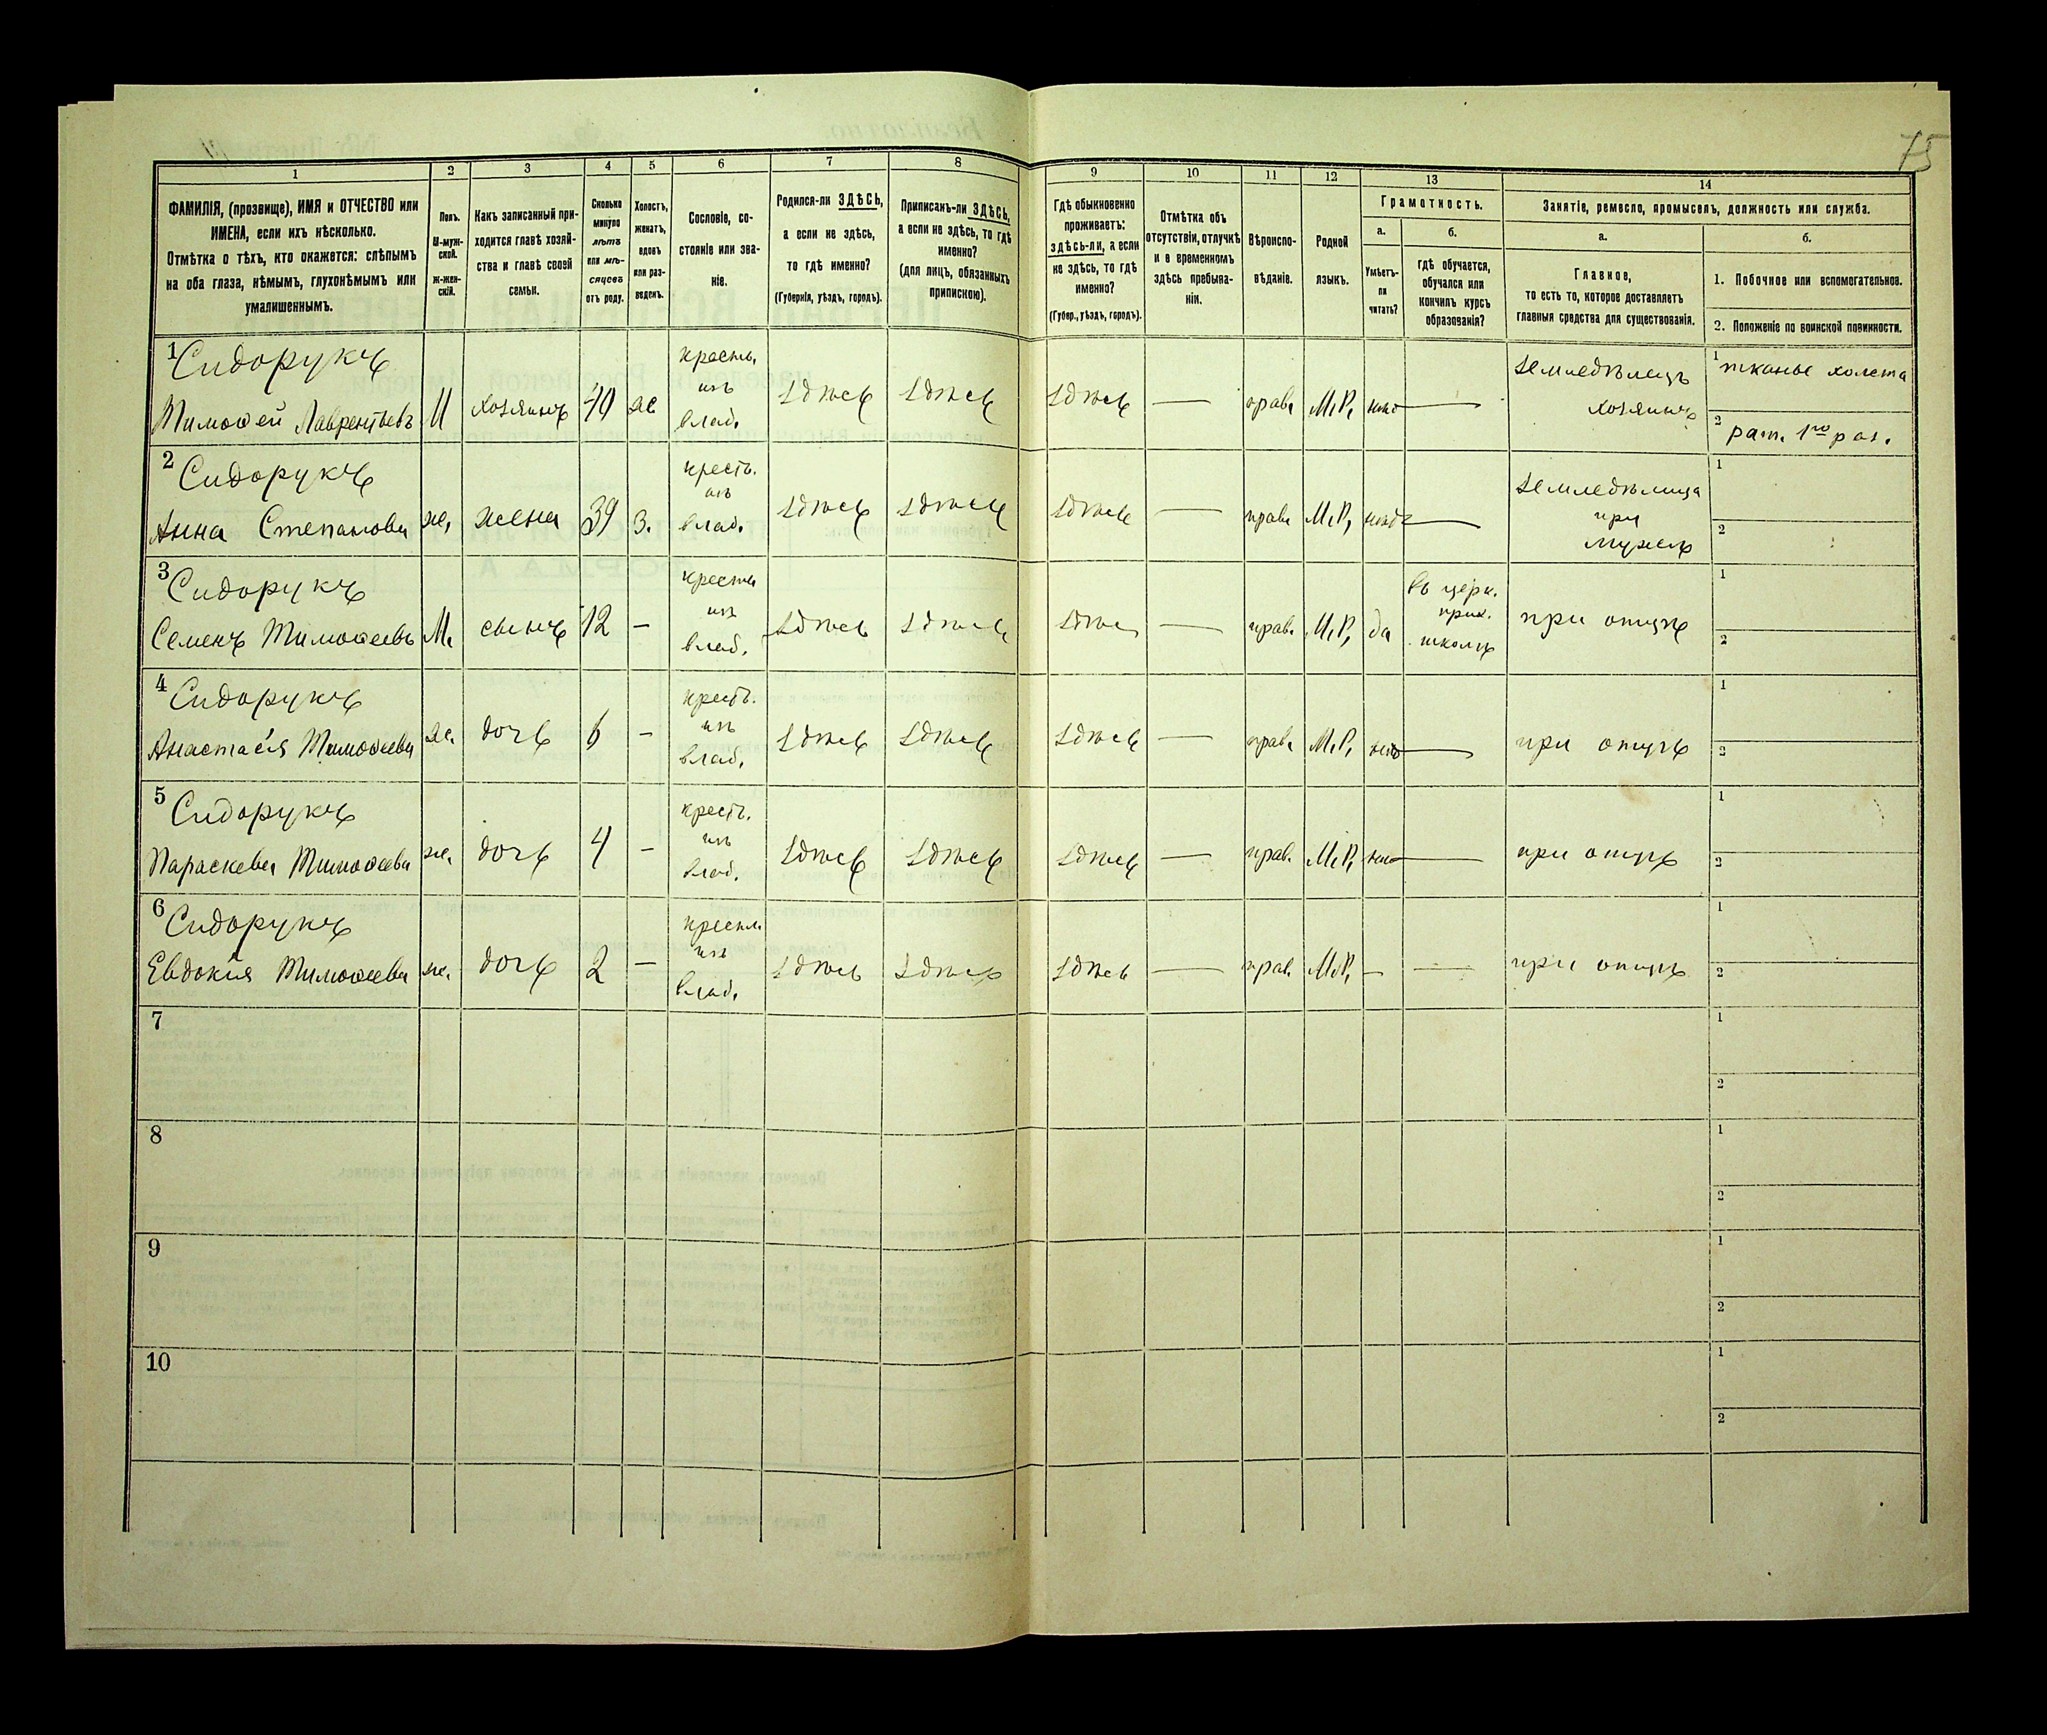 75
1
2
3
4
5
6
7
8
9
10
11
12
13
14
ФАМИЛІЯ, (прозвище), ИМЯ и ОТЧЕСТВО или
ИМЕНА, если ихъ нѣсколько.
Отмѣтка о тѣхъ, кто окажется: слѣпымъ
на оба глаза, нѣмымъ, глухонѣмымъ или
умалишеннымъ.
Полъ.
М-муж-
ской.
Ж-жен-
скій.
Какъ записанный при-
ходится главѣ хозяй-
ства и главѣ своей
семьи.
Сколько
минуло
лѣтъ
или мѣ-
сяцевъ
отъ роду.
Холостъ,
женатъ,
вдовъ
или раз-
веденъ.
Сословіе, со-
стояніе или зва-
ніе.
Родился-ли ЗДѢСЬ,
а если не здѣсь,
то гдѣ именно?
(Губернія, уѣздъ, городъ).
Приписанъ-ли ЗДѢСЬ,
а если не здѣсь, то гдѣ
именно?
(для лицъ, обязанныхъ
припискою).
Гдѣ обыкновенно
проживаетъ:
здѣсь-ли, а если
не здѣсь, то гдѣ
именно?
(Губер., уѣздъ, городъ).
Отмѣтка объ
отсутствіи, отлучкѣ
и о временномъ
здѣсь пребыва-
ніи.
Вѣроиспо-
вѣданіе.
Родной
языкъ.
Грамотность.
а.
Умѣетъ-
ли
читать?
б.
Гдѣ обучается,
обучался или
кончилъ курсъ
образованія?
Занятіе, ремесло, промыселъ, должность или служба.
а.
Главное,
то есть то, которое доставляетъ
главныя средства для существованія.
б.
1. Побочное или вспомогательное.
2. Положеніе по воинской повинности.
1
Сидорукъ
Тимоѳей Лаврентьевъ
М
хозяинъ
40
ж
крестъ.
изъ
влад.
здѣсь
здѣсь
здѣсь
—
прав.
М.Р.
нѣтъ
—
земледѣлецъ
хозяинъ
1 тканье холста
2 рат. 1го раз.
2
Сидорукъ
Анна Степанова
ж.
жена
39
З.
крестъ.
изъ
влад.
здѣсь
здѣсь
здѣсь
—
прав.
М.Р.
нѣтъ
—
земледѣлица
при
мужѣ
1
2
3
Сидорукъ
Семенъ Тимоѳеевъ
М.
сынъ
12
—
крестъ
изъ
влад.
здѣсь
здѣсь
здѣсь
—
прав.
М.Р.
да
въ церк.
прих.
школѣ
при отцѣ
1
2
4
Сидорукъ
Анастасія Тимоѳеева
ж.
дочь
6
—
крестъ.
изъ
влад.
здѣсь
здѣсь
здѣсь
—
прав.
М.Р.
нѣтъ
—
при отцѣ
1
2
5
Сидорукъ
Параскева Тимоѳеева
ж.
дочь
4
—
крестъ.
изъ
влад.
здѣсь
здѣсь
здѣсь
—
прав.
М.Р.
нѣтъ
—
при отцѣ
1
2
6
Сидорукъ
Евдокія Тимоѳеева
ж.
дочь
2
—
крестъ.
изъ
влад.
здѣсь
здѣсь
здѣсь
—
прав.
М.Р.
—
—
при отцѣ
1
2
7
1
2
8
1
2
9
1
2
10
1
2